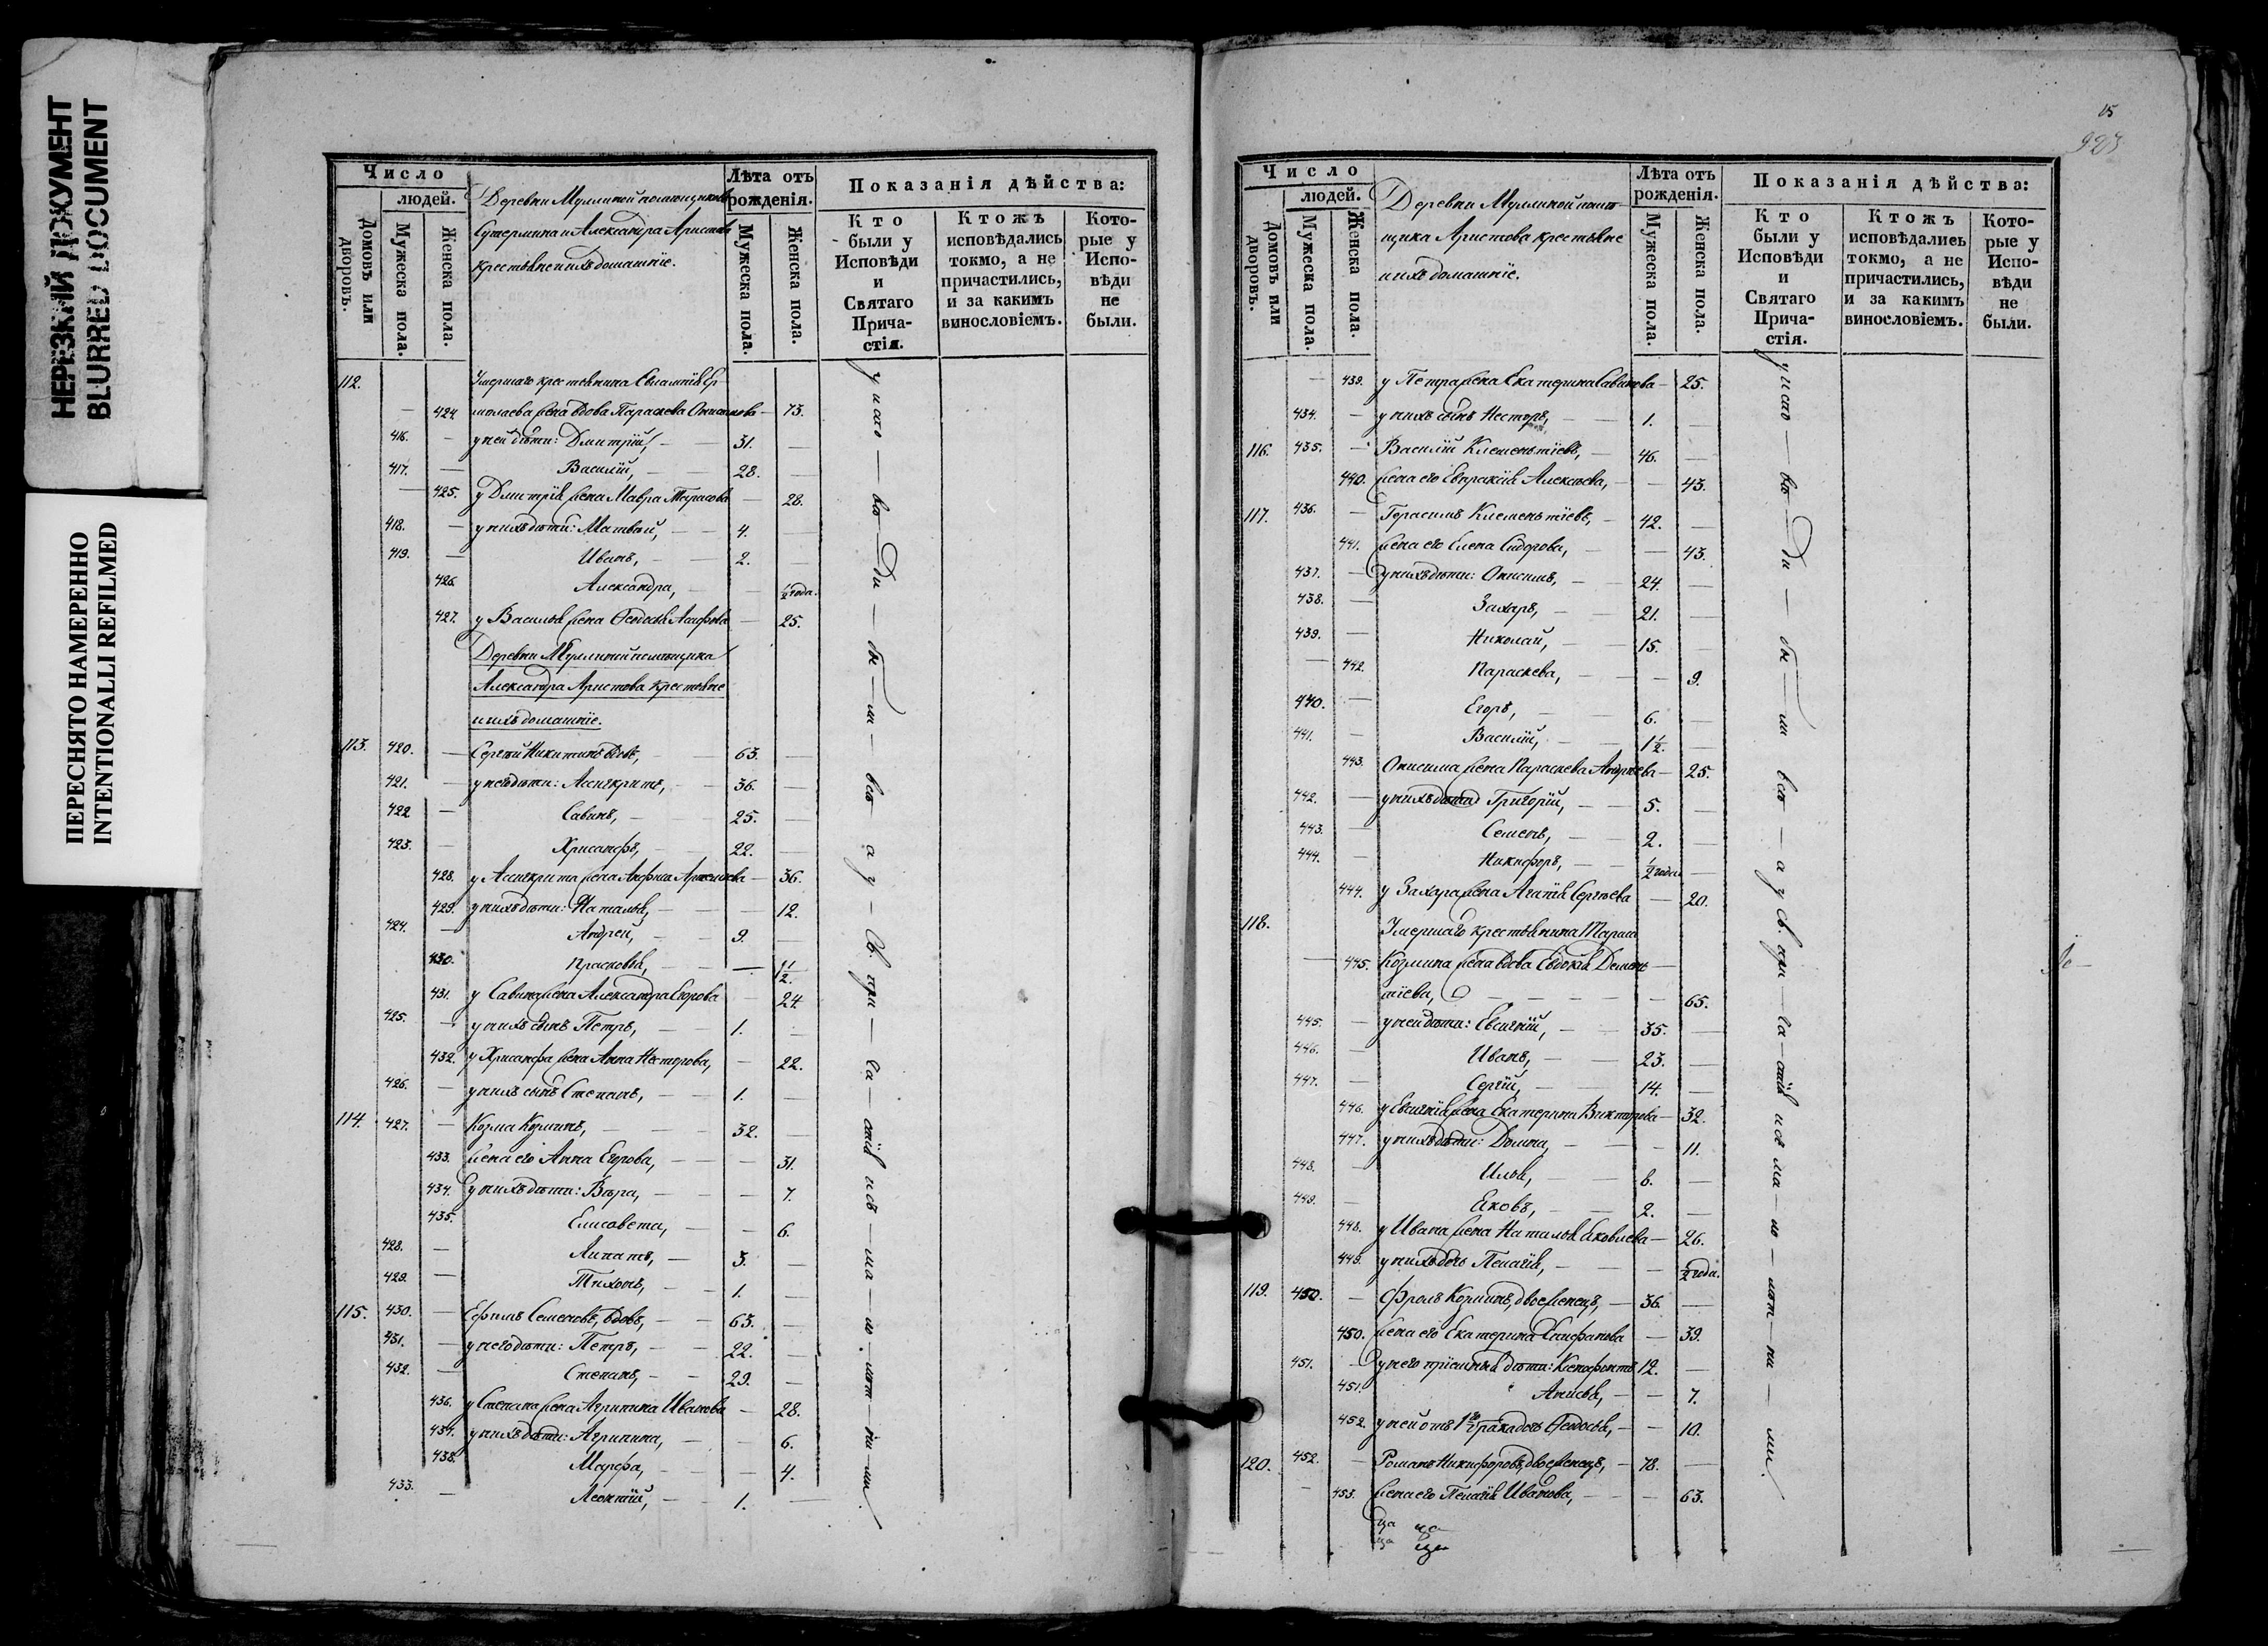 НЕРЕЗКИЙ ДОКУМЕНТ
BLURRED DOCUMENT
ПЕРЕСНЯТО НАМЕРЕННО
INTENTIONALLI REFILMED
Число
людей.
Домовъ или дворовъ.
Мужеска пола.
Женска пола.
Деревни Муллиной помощиковъ
Сутермина и Александра Аристова
крестьяне и ихъ домашніе.
Лѣта отъ рожденія.
Мужеска пола.
Женска пола.
Показанія дѣйства:
Кто были у Исповѣди и Святаго Прича-стія.
Ктожъ исповѣдались токмо, а не причастились, и за какимъ винословіемъ.
Кото-рые у Испо-вѣди не были.
112. Умершаго крестьянина Евлампія Ер
— 424. молаева жена вдова Параскева — 73.
416. — у ней дѣти: Дмитрій, — 31. —
417. — Василій, — 28. —
— 425. у Дмитрія жена Мавра Тарасова — 28.
418. — у нихъ дѣти: Матвей, — 4. —
419. — Иванъ, — 2. —
426. Александра, — ½ года.
427. у Василья жена Ѳеодосья — 25.
Деревни Муллиной помѣщика
Александра Аристова крестьяне
и ихъ домашніе.
113. 420. — Сергѣй Никитинъ вдовъ, — 63. —
421. — у него дѣти: Ассигкритъ, — 36. —
422 — Савинъ, — 25. —
423. — Хрисанфъ, — 22. —
428. у Ассигкрита жена — 36.
429. у нихъ дѣти: Наталья, — 12.
424. — Андрей, — 9. —
430. Прасковья, — 1½.
431. у Савина жена Александра Егорова — 24
425. — у нихъ сынъ Петръ, — 1. —
432. у Хрисанфа жена Анна Несторова, — 22.
426. — у нихъ сынъ Степанъ, — 1. —
114. 427. — Козма Козминъ, — 32. —
433. жена его Анна Егорова, — 31.
434. у нихъ дѣти: Вѣра, — 7.
435. Елисавета, — 6.
428. — Липатъ, — 3. —
429. — Тихонъ, — 1. —
115. 430. — Ефимъ Семеновъ, вдовъ, — 63. —
431. — у него дѣти: Петръ, — 22. —
432. — Степанъ, — 29. —
436. у Степана жена Агрипина Иванова — 28.
437. у нихъ дѣти: Агрипина, — 6.
438. Марфа, — 4.
433. — Леонтій, — 1. —
у испо — вѣ — ди — бы — ли — всѣ — а у — Св. при — ча — стія исъ — ма — ло — лѣт — ни — ми.
15
923
Число
людей.
Домовъ или дворовъ.
Мужеска пола.
Женска пола.
Деревни Муллиной помѣ-
щика Аристова крестьяне
и ихъ домашніе.
Лѣта отъ рожденія.
Мужеска пола.
Женска пола.
Показанія дѣйства:
Кто были у Исповѣди и Святаго Прича-стія.
Ктожъ исповѣдались токмо, а не причастились, и за какимъ винословіемъ.
Кото-рые у Испо-вѣди не были.
— 439. у Петра жена Екатерина Савинова — 25.
434. — у нихъ сынъ Несторъ, — 1. —
116. 435. — Василій Клементіевъ, — 46. —
440. жена его Евпраксія Алексѣева, — 43.
117. 436. — Герасимъ Клементіевъ, — 42. —
441. жена его Елена Сидорова, — 43.
437. — у нихъ дѣти: Онисимъ, — 24. —
438. — Захаръ, — 21. —
439. — Николай, — 15. —
— 442. Параскева, — 9.
440. — Егоръ, — 6. —
441. — Василій, — 1½. —
443. Онисима жена Параскева Андреева — 25.
442. — у нихъ дѣти Григорій, — 5. —
443. — Семенъ, — 2. —
444. — Никифоръ, — ½ года —
444. у Захара жена Агапія Сергѣева — 20.
118. Умершаго крестьянина Тараса
— 445. Козмина жена вдова Евдокія Демень —
тіева, — 65.
445. — у ней дѣти: Евсигній, — 35. —
446. — Иванъ, — 23. —
447. — Сергій, — 14. —
446. у Евсигнія жена Екатерина Викторова — 32.
447. у нихъ дѣти: Домна, — 11.
448. — Илья, — 6. —
449. — Яковъ, — 2. —
448. у Ивана жена Наталья Яковлева — 26.
449. у нихъ дочь Пелагія, — ½ года.
119. 450. — Фролъ Козминъ, двоеженецъ, — 36. —
450. жена его Екатерина — 39.
451. — у него дѣти: Ксенофонтъ 12. —
451. Анисья, — 7.
452. у ней отъ 1го брака дочь Ѳеодосья, — 10.
120. 452. — Романъ Никифоровъ, двоеженецъ, — 78. —
— 453. жена его Пелагія Иванова, — 63.
у испо — вѣ — ди — бы — ли всѣ — а у Св. при — ча — стія исъ ма — ло — лѣт — ни — ми.